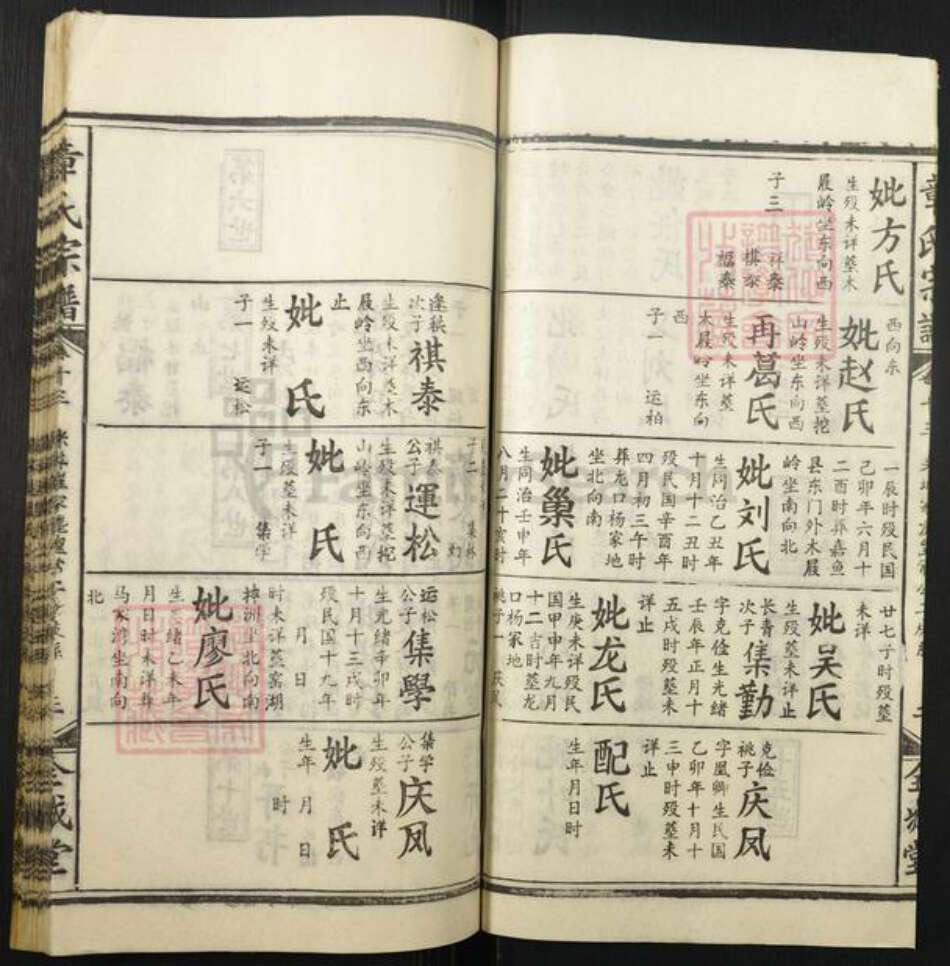 妣方氏
生殁未详墓木
屐岭坐东向西
子三
祥泰
祺泰
福泰
西向东
妣赵氏
生殁未详墓挖
山岭坐东向西
再葛氏
生殁未详墓
木屐岭坐东向
西
子一 运柏
一辰时殁民国
己卯年六月十
二酉时葬嘉鱼
县东门外木屐
岭坐南向北
妣刘氏
生同治乙丑年
十月十二丑时
殁民国辛酉年
四月初三午时
葬龙口杨家地
坐北向南
妣巢氏
生同治壬申年
八月二十亥时
廿七子时殁墓
未详
妣吴氏
生殁墓未详止
长青
次子集勤
字克俭生光绪
壬辰年正月十
五戌时殁墓未
详止
妣龙氏
生庚未详殁民
国甲申年九月
十二吉时墓龙
口杨家地
祧子一 庆凤
克俭
祧子庆凤
字凰卿生民国
乙卯年十月十
三申时殁墓未
详止
配氏
生年月日时
章氏宗谱
卷十三
三
全城堂
第六世
逢稹
次子祺泰
生殁未详墓木
屐岭坐西向东
止
妣氏
生殁未详
子一 运松
祺泰
公子運松
生殁未详墓挖
山岭坐东向西
妣氏
生殁墓未详
子一 集学
运松
公子集學
生光绪辛卯年
十月十三戌时
殁民国十九年
月 日
时未详墓窑湖
捧洲坐北向南
妣廖氏
生光绪乙未年
月日时未详葬
马家湾坐南向
北
集学
公子庆凤
生殁墓未详
妣氏
生年 月 日 时